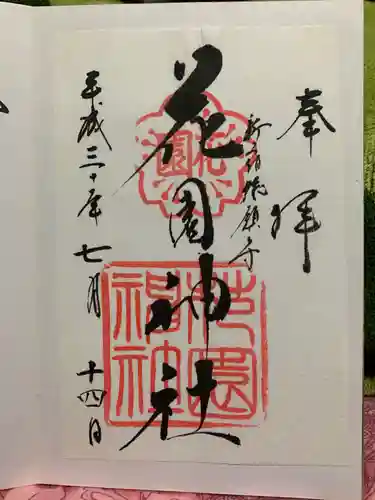 奉拝
新宿鎮守
花園神社
平成三十年七月十四日
花園
花園神社